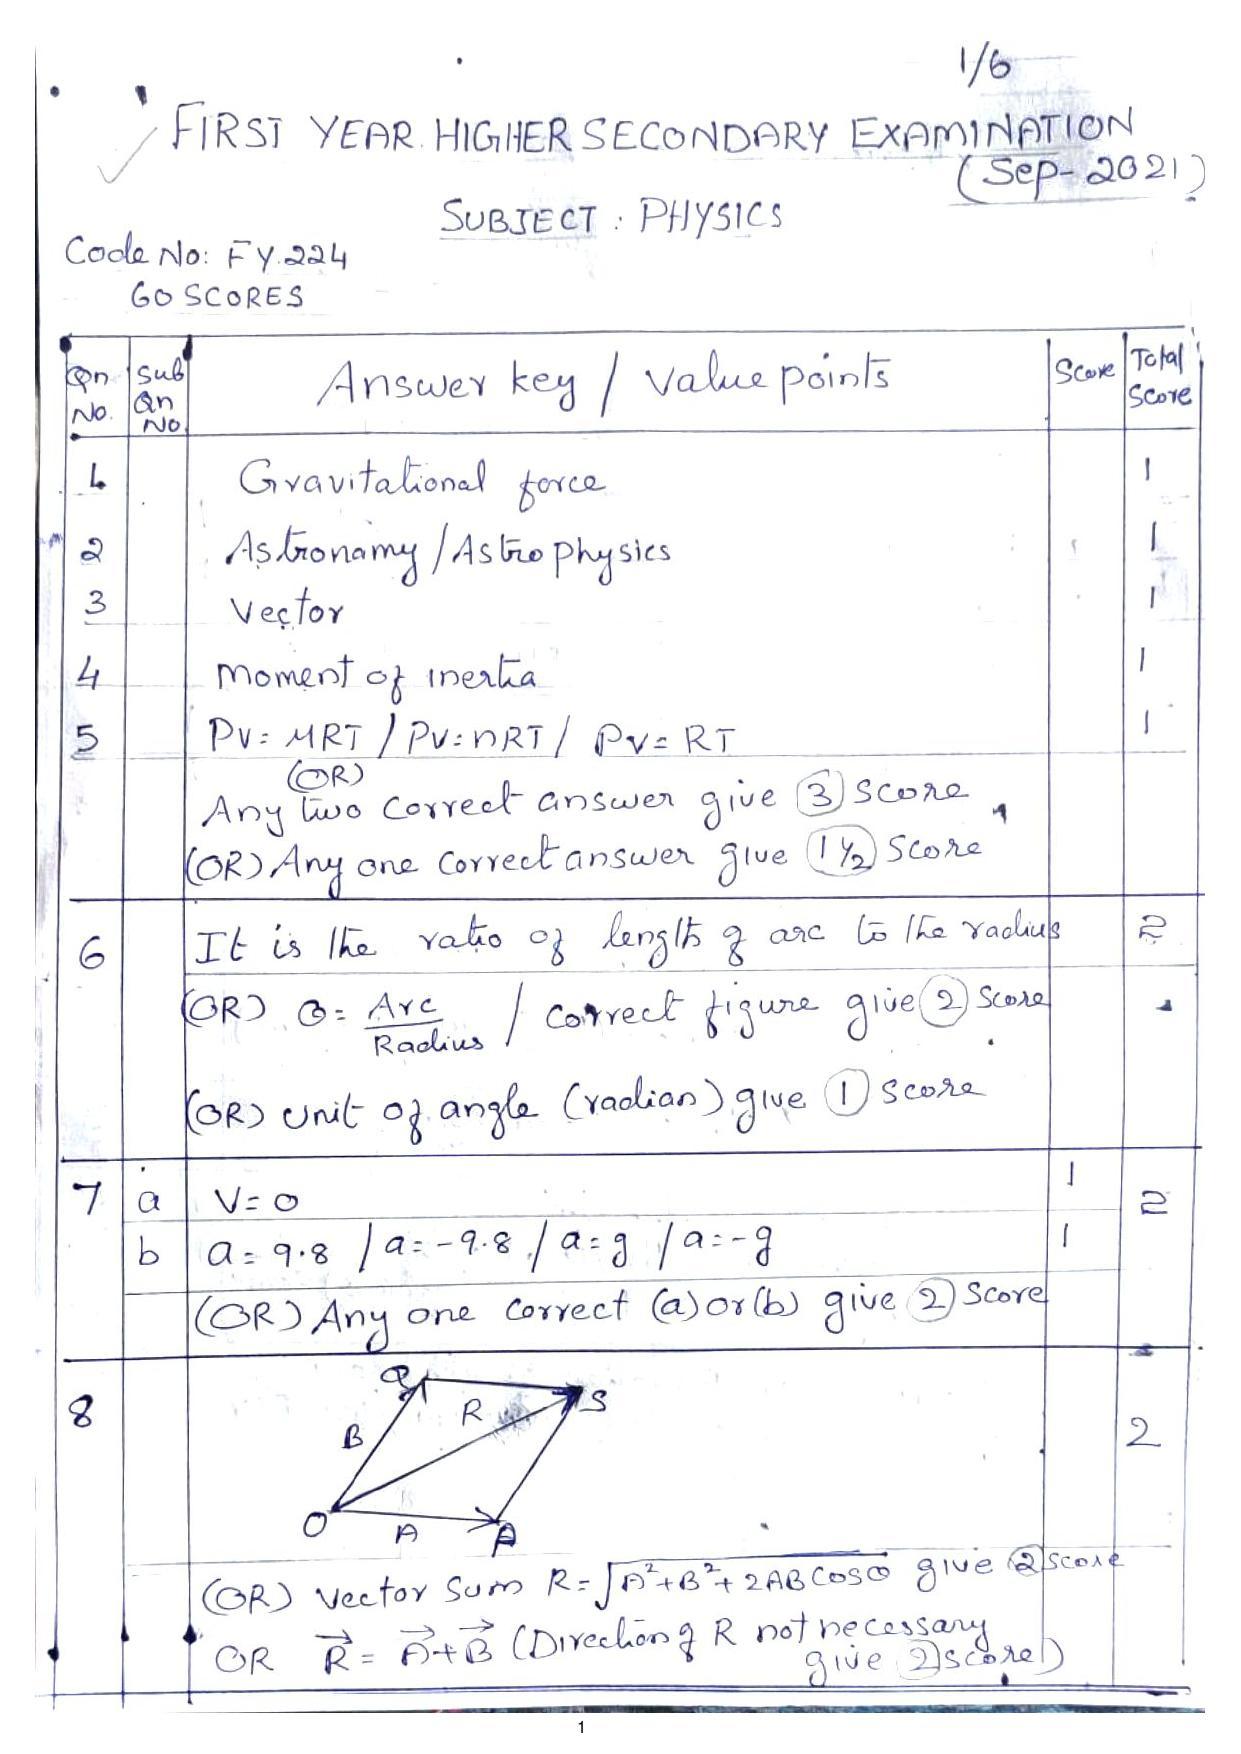 1/6
FIRST YEAR HIGHER SECONDARY EXAMINATION
(Sep-2021)
SUBJECT : PHYSICS
Code No: FY.224
60 SCORES
Qn No. Sub Qn No Answer key / Value points Score Total Score
1 Gravitational force 1
2 Astronamy/Astrophysics 1
3 Vector 1
4 Moment of inertia 1
5 PV = μRT / PV = nRT / PV = RT 1
(OR)
Any two correct answer give 3 score
(OR) Any one correct answer give 1 1/2 score
6 It is the ratio of length of arc to the radius 2
(OR) θ = Arc/Radius / correct figure give 2 score
(OR) unit of angle (radian) give 1 score
7 a V = 0 1 2
b a = 9.8 / a = -9.8 / a = g / a = -g 1
(OR) Any one correct (a) or (b) give 2 score
8 2
S
R
B
O
A
(OR) vector sum R = √A²+B²+2ABCosθ give 2 score
OR R⃗ = A⃗+B⃗ (Direction of R not necessary
give 2 score)
1